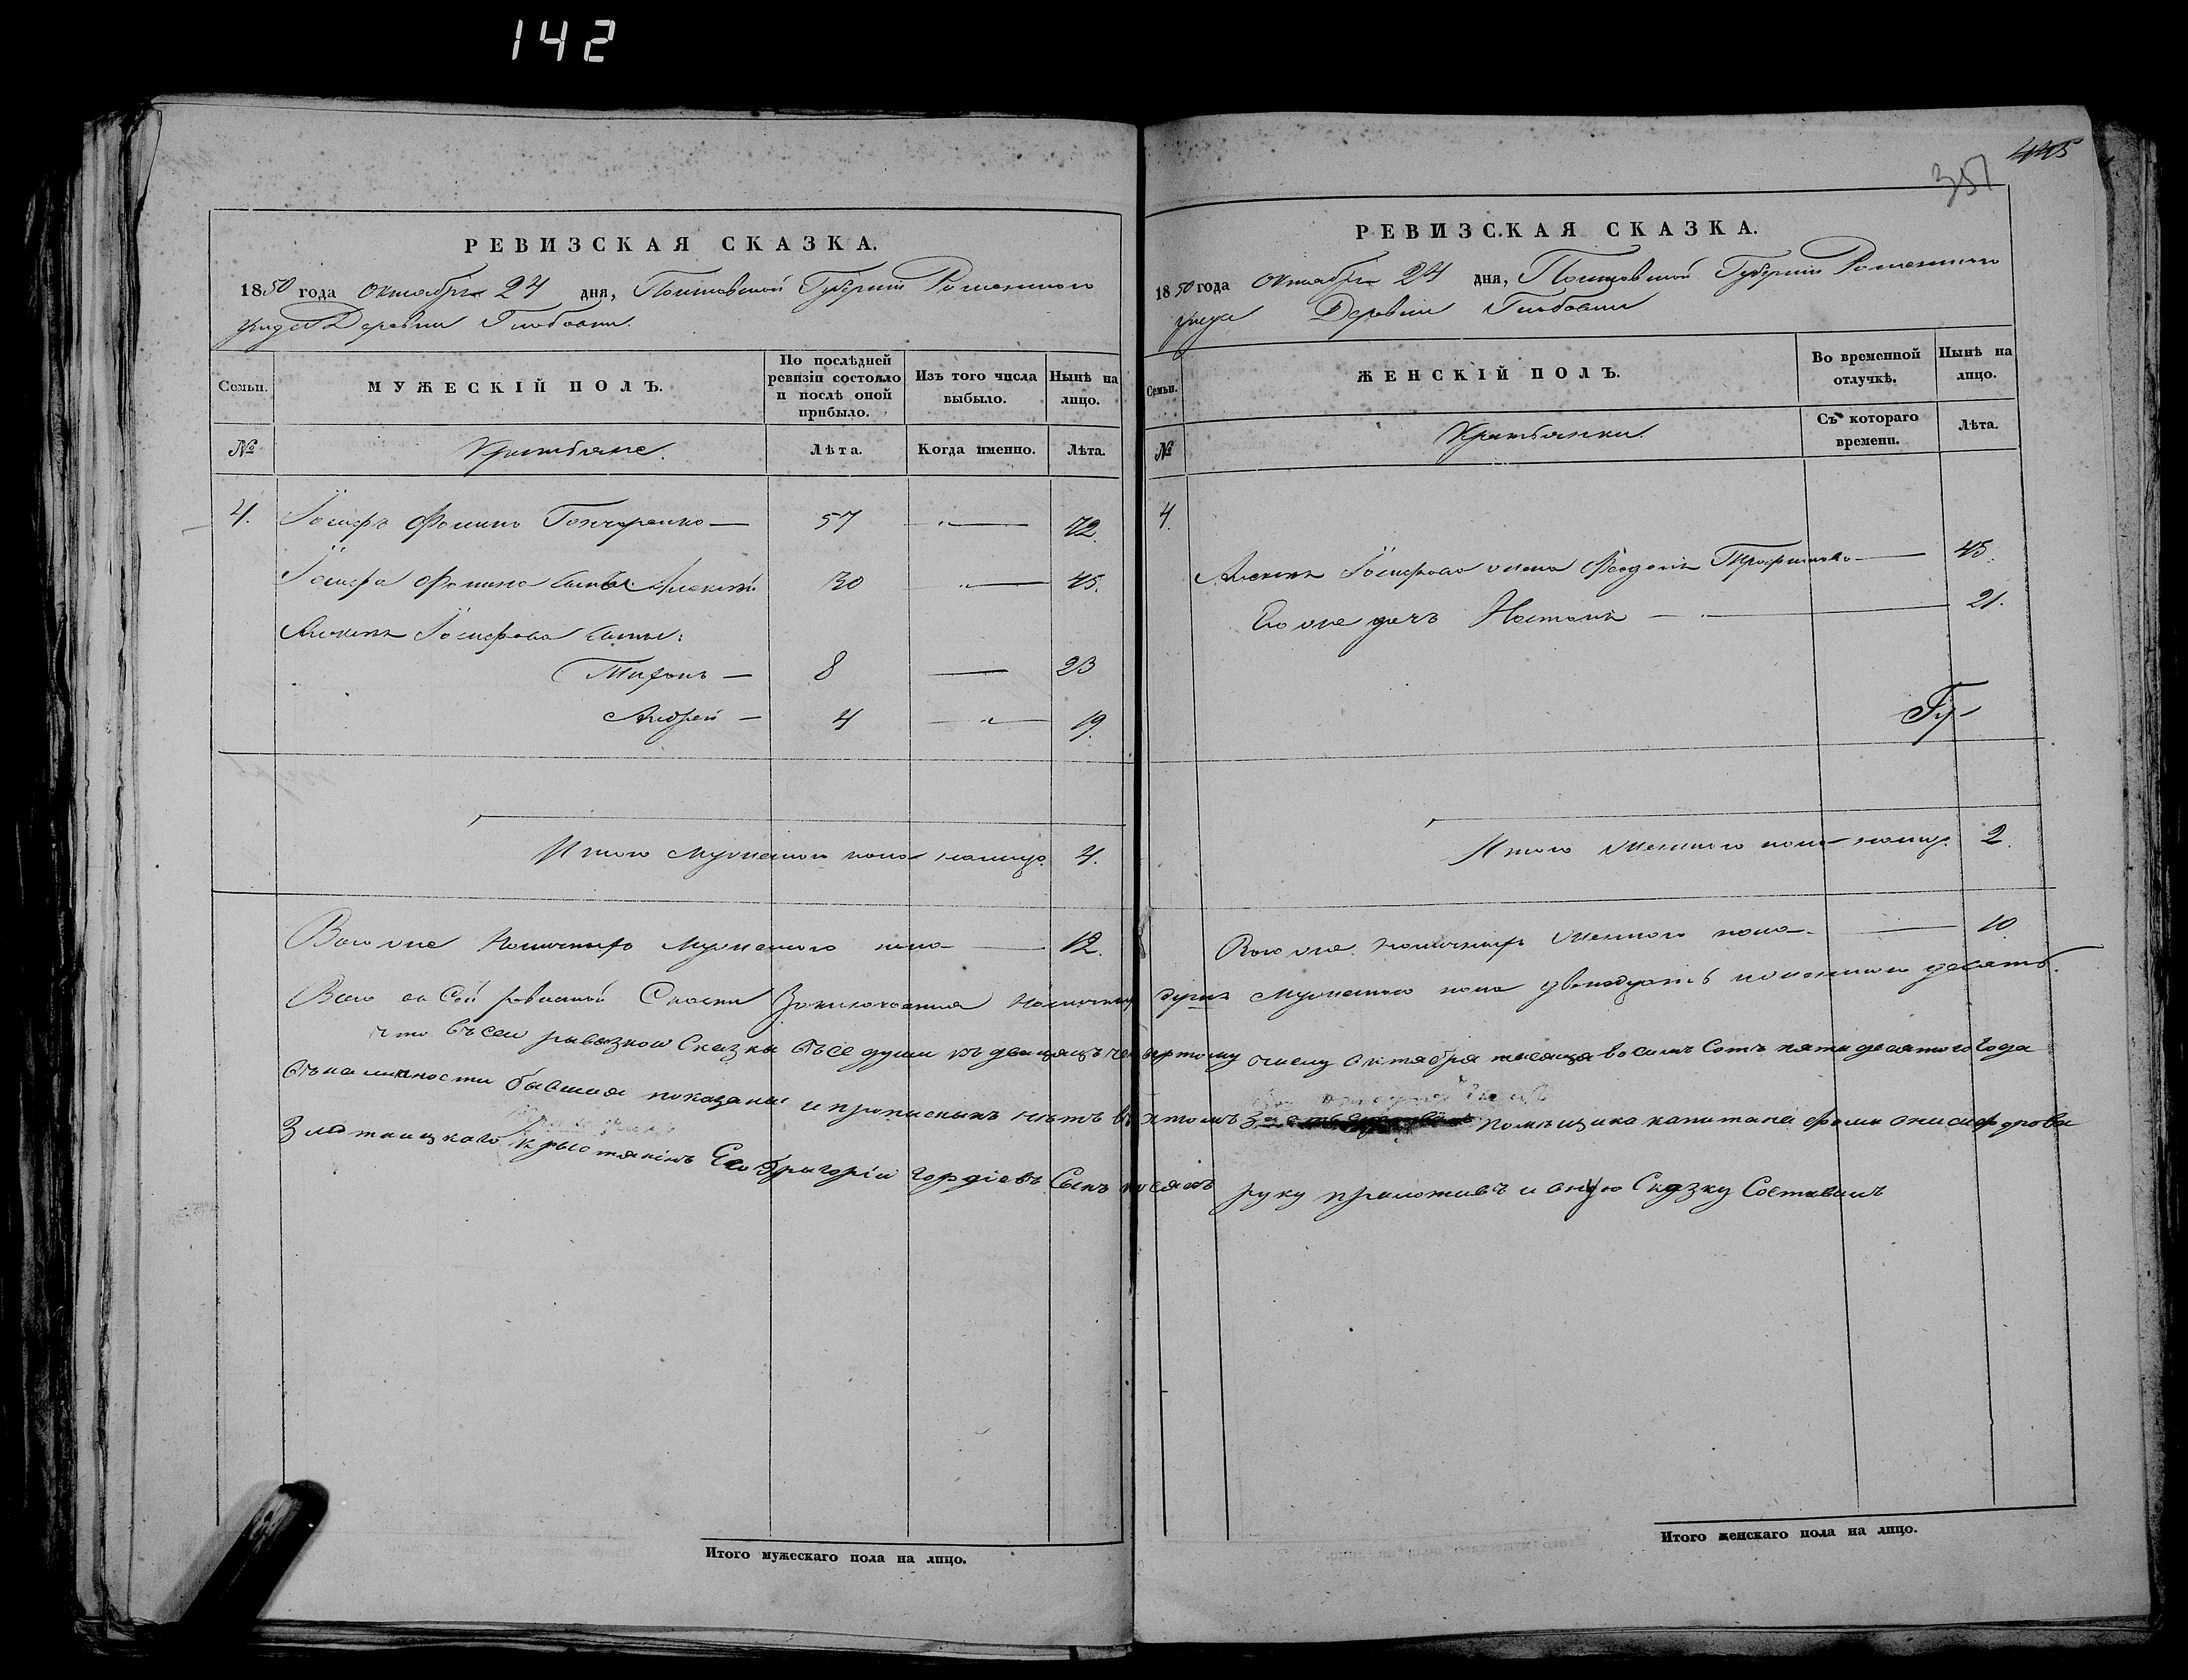 142
РЕВИЗСКАЯ СКАЗКА.
1850 года Октября 24 дня, Полтавской Губернии Роменского
уезда Деревни
Семьи.
МУЖЕСКІЙ ПОЛЪ.
По послѣдней ревизіи состояло и послѣ оной прибыло.
Изъ того числа выбыло.
Нынѣ на лицо.
№
Крестьяне.
Лѣта.
Когда именно.
Лѣта.
4. Іосифъ Фоминъ Гончаренко — 57 — 72.
Іосифа Фомина сынъ Алексѣй 30 — 45.
Алексѣя Іосифова сыны:
Тихонъ — 8 — 23
Андрей — 4 — 19
Итого мужеского пола на лицо. 4.
Всего же наличныхъ мужеского пола — 12.
РЕВИЗСКАЯ СКАЗКА.
445
351
1850 года Октября 24 дня, Полтавской Губерніи Роменского
уезда Деревни
Семьи.
ЖЕНСКІЙ ПОЛЪ.
Во временной отлучкѣ.
Нынѣ на лицо.
№
Крестьянки.
Съ котораго времени.
Лѣта.
4.
Алексѣя Іосифова жена Феодосія Трофимова — 45.
Его же дочь — 21.
Итого женского пола на лицо. 2.
Всего же наличныхъ женского пола — 10
Всего въ сей ревизской Сказки Заключается наличныхъ душъ мужеского пола двенадцать и женского десять.
что въ сеи ревизкои Сказки въсе души къ двацать четвертому числу октября тысяща восимъ сотъ пятидесятого года
въналичности бывшия показаны и прописныхъ нѣтъ въ томъ помѣщика капитана фомы онисифорова
Злотницкаго крыстянінъ Его Григорій Гордіевъ Сынъ руку приложивъ и оную Сказку Составилъ
Итого мужескаго пола на лицо.
Итого женскаго пола на лицо.